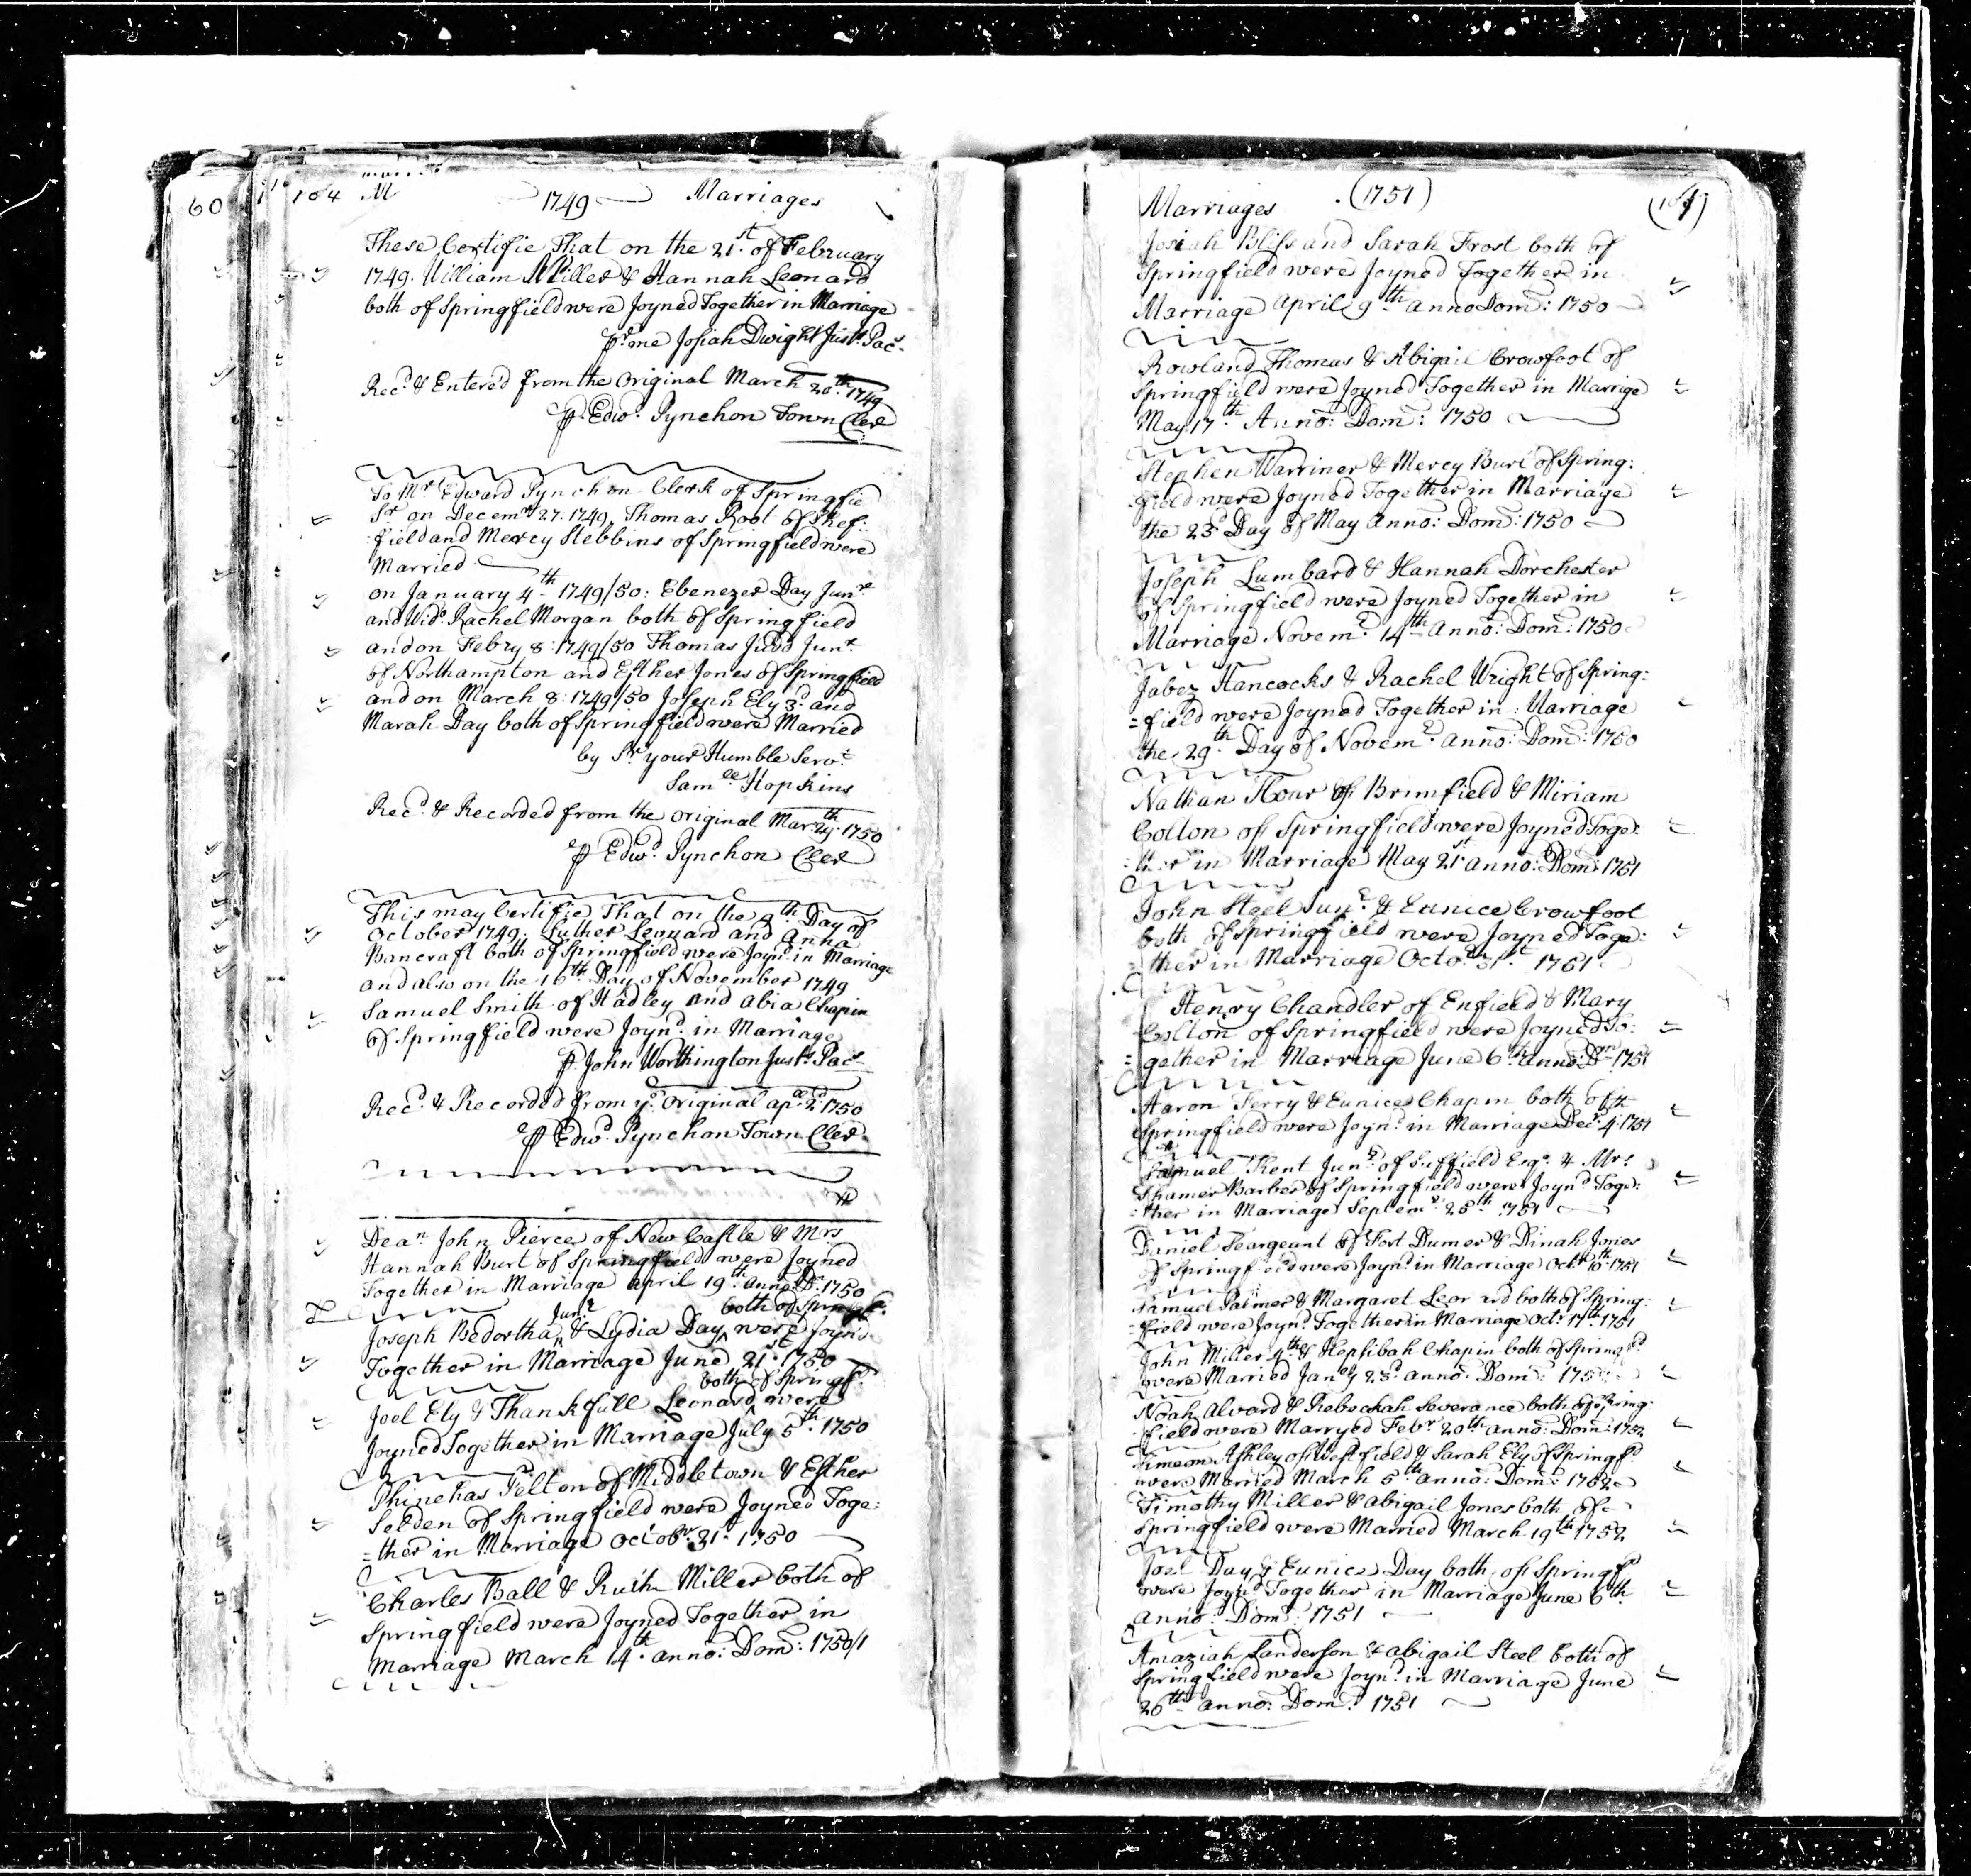 60
104 M 1749 Marriages
These Certifie That on the 21st of February
1749. William Miller & Hannah Leonard
both of Springfield were Joyned Together in Marriage
pr me Josiah Dwight Justs Pacs
Recd & Entered from the Original March 20th 1749
pr Edwd Pynchon Town Cler
To Mr Edward Pynchon Clerk of Springfie
Sr on Decemr 27: 1749, Thomas Root of Shef:
:field and Mercy Stebbins of Springfield were
Married
on January 4th 1749/50: Ebenezer Day Junr
and Wido Rachel Morgan both of Springfield
and on Febry 8: 1749/50 Thomas Judd Junr
of Northampton and Esther Jones of Springfield
and on March 8: 1749/50 Joseph Ely 3d and
Marah Day both of Springfield were Married
by Sr your Humble Servt
Samll Hopkins
Recd & Recorded from the original Mar 29th 1750
pr Edwd Pynchon Cler
This may Certifie That on the Day of
October 1749: Luther Leonard and Anna
Bancraft both of Springfield were Joynd in Marriage
and also on the 16th Day of November 1749
Samuel Smith of Hadley and Abia Chapin
of Springfield were Joynd in Marriage
pr John Worthington Justs Pacs
Recd & Recorded from ye Original apll 2d 1750
pr Edwd Pynchon Town Cler
Dean John Pierce of New Castle & Mrs
Hannah Burt of Springfield were Joyned
Together in Marriage april 19th anno: Dm 1750
Junr both of Springfd
Joseph Bedortha & Lydia Day were Joynd
Together in Marriage June 21st 1750
both of Springfd
Joel Ely & Thankfull Leonard were
Joyned Together in Marriage July 5th 1750
Phinehas Pelton of Middletown & Esther
Selden of Springfield were Joyned Toge:
=ther in Marriage Octobr 31st 1750
Charles Ball & Ruth Miller both of
Springfield were Joyned Together in
Marriage March 14th anno: Dom: 1750/1
Marriages (1751)
Josiah Bliss and Sarah Frost both of
Springfield were Joyned Together in
Marriage April 9th anno Dom: 1750
Rowland Thomas & Abigail Crowfoot of
Springfield were Joyned Together in Marrige
May 17th Anno: Dom: 1750
Stephen Warriner & Mercy Burt of Spring:
:field were Joyned Together in Marriage
the 23d Day of May Anno: Dom: 1750
Joseph Lumbard & Hannah Dorchester
of Springfield were Joyned Together in
Marriage Novemr 14th Anno: Dom: 1750
Jabez Hancocks & Rachel Wright of Spring:
=field were Joyned Together in Marriage
the 29th Day of Novemr anno: Dom: 1750
Nathan Hoar of Brimfield & Miriam
Colton of Springfield were Joyned Toge:
ther in Marriage May 21st anno: Dom: 1751
John Steel Junr & Eunice Crowfoot
both of Springfield were Joyned Toge:
=ther in Marriage Octor 31st 1751
Henry Chandler of Enfield & Mary
Colton of Springfield were Joyned To:
=gether in Marriage June 6th anno: Dm 1751
Aaron Ferry & Eunice Chapin both of
Springfield were Joynd in Marriage Decr 4: 1751
Samuel Kent Junr of Suffield Esqr & Mrs
Barber of Springfield were Joynd Toge:
:ther in Marriage Septemr 25th 1751
Daniel Seargeant of Fort Dumer & Dinah Jones
of Springfield were Joynd in Marriage Octr 10th 1751
Samuel Palmer & Margaret Leonard both of Spring:
=field were Joynd Together in Marriage Octr 17th 1751
John Miller 4th & Hepsibah Chapin both of Springfd
were Married Janry 23d anno: Dom:
Noah Alvard & Rebeckah Severance both of Spring:
field were Marryed Febr 20th anno: Dom: 1752
Simeon Ashley of Westfield & Sarah Ely of Springfd
were Married March 5th anno: Dom: 1752
Timothy Miller & Abigail Jones both of
Springfield were Married March 19th 1752
Joel Day & Eunice Day both of Springfd
were Joynd Together in Marriage June 6th
anno: Dom: 1751
Amaziah Sanderson & Abigail Steel both of
Springfield were Joynd in Marriage June
26th anno: Dom: 1751